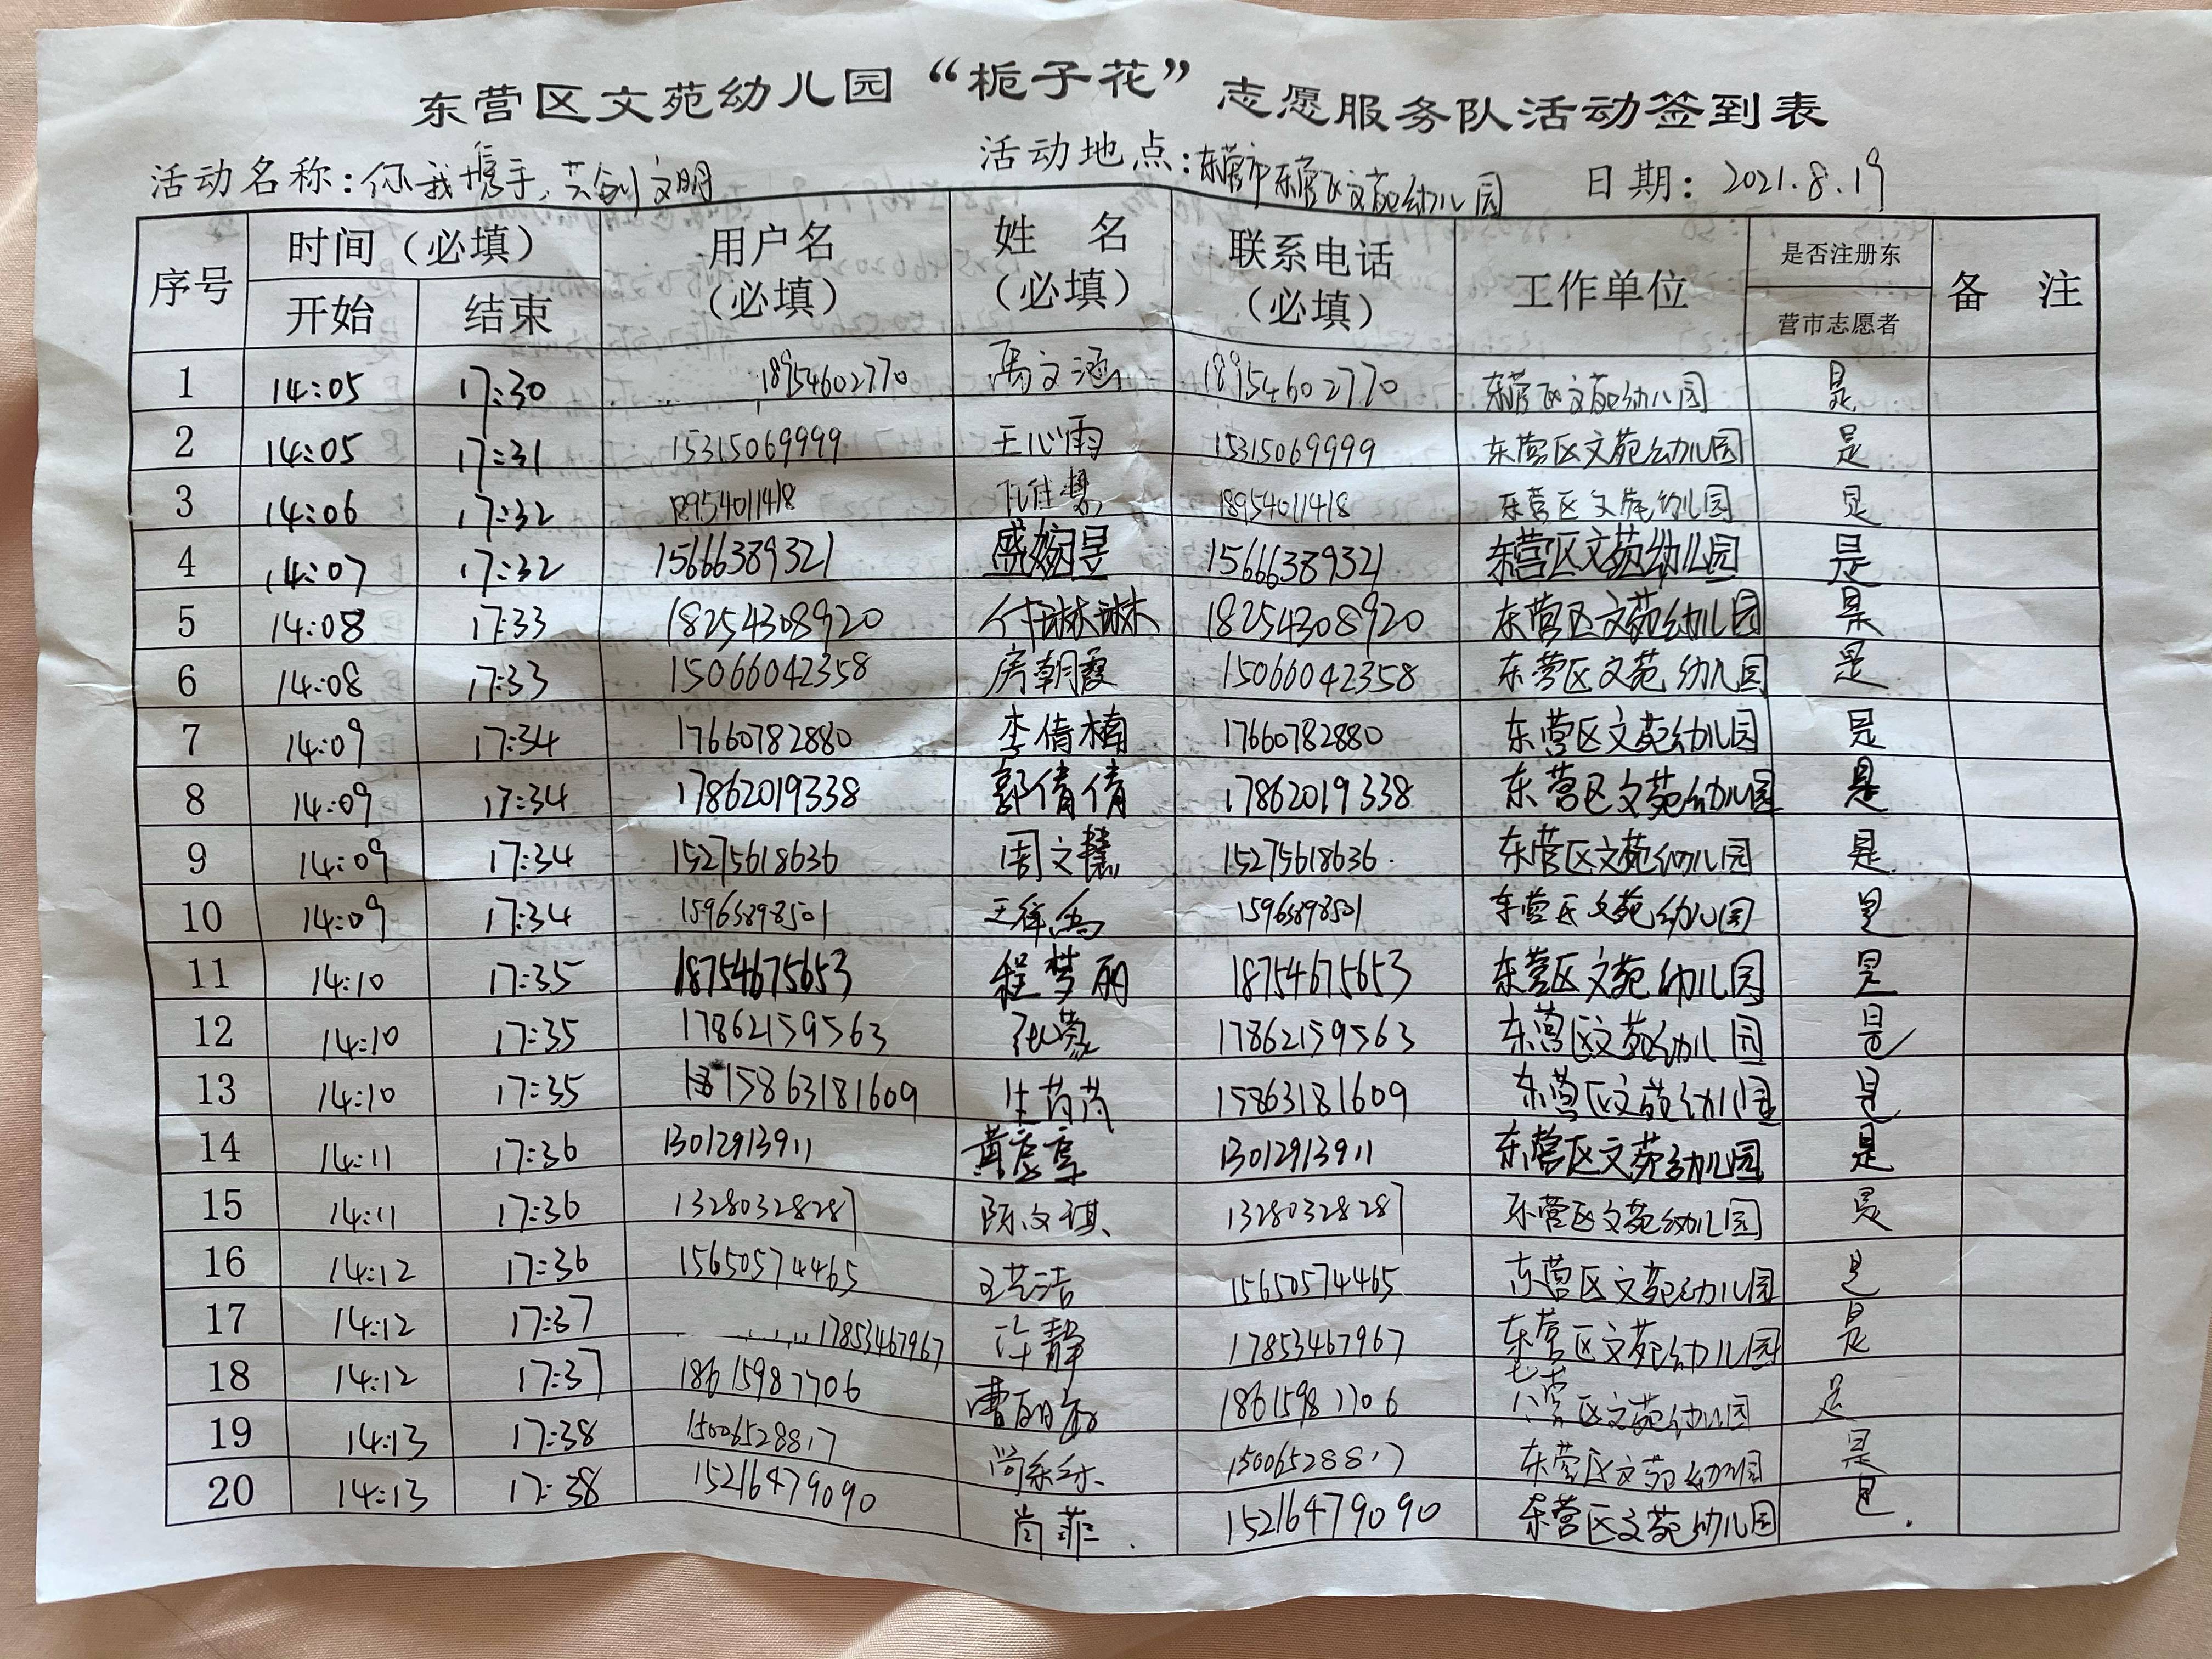 东营区文苑幼儿园“栀子花”志愿服务队活动签到表
活动名称：你我携手，共创文明 活动地点：东营市东营区文苑幼儿园 日期：2021.8.19
序号 时间（必填） 用户名（必填） 姓 名（必填） 联系电话（必填） 工作单位 是否注册东营市志愿者 备 注
开始 结束
1 14:05 17:30 18954602770 禹文涵 18954602770 东营区文苑幼儿园 是
2 14:05 17:31 15315069999 王心雨 15315069999 东营区文苑幼儿园 是
3 14:06 17:32 18954011418 18954011418 东营区文苑幼儿园 是
4 14:07 17:32 15666389321 盛婉昱 15666389321 东营区文苑幼儿园 是
5 14:08 17:33 18254308920 付琳琳 18254308920 东营区文苑幼儿园 是
6 14:08 17:33 15066042358 房朝霞 15066042358 东营区文苑幼儿园 是
7 14:09 17:34 17660782880 李倩楠 17660782880 东营区文苑幼儿园 是
8 14:09 17:34 17862019338 郭倩倩 17862019338 东营区文苑幼儿园 是
9 14:09 17:34 15275618636 周文慧 15275618636 东营区文苑幼儿园 是
10 14:09 17:34 15963898501 15963898501 东营区文苑幼儿园 是
11 14:10 17:35 18754675653 程梦丽 18754675653 东营区文苑幼儿园 是
12 14:10 17:35 17862159563 张蒙 17862159563 东营区文苑幼儿园 是
13 14:10 17:35 15863181609 生芮芮 15863181609 东营区文苑幼儿园 是
14 14:11 17:36 13012913911 13012913911 东营区文苑幼儿园 是
15 14:11 17:36 13280328287 陈文琪 13280328287 东营区文苑幼儿园 是
16 14:12 17:36 15650574465 王艺洁 15650574465 东营区文苑幼儿园 是
17 14:12 17:37 17853467967 许静 17853467967 东营区文苑幼儿园 是
18 14:12 17:37 18615987706 18615987706 东营区文苑幼儿园 是
19 14:13 17:38 15006528817 15006528817 东营区文苑幼儿园 是
20 14:13 17:38 15216479090 尚菲 15216479090 东营区文苑幼儿园 是